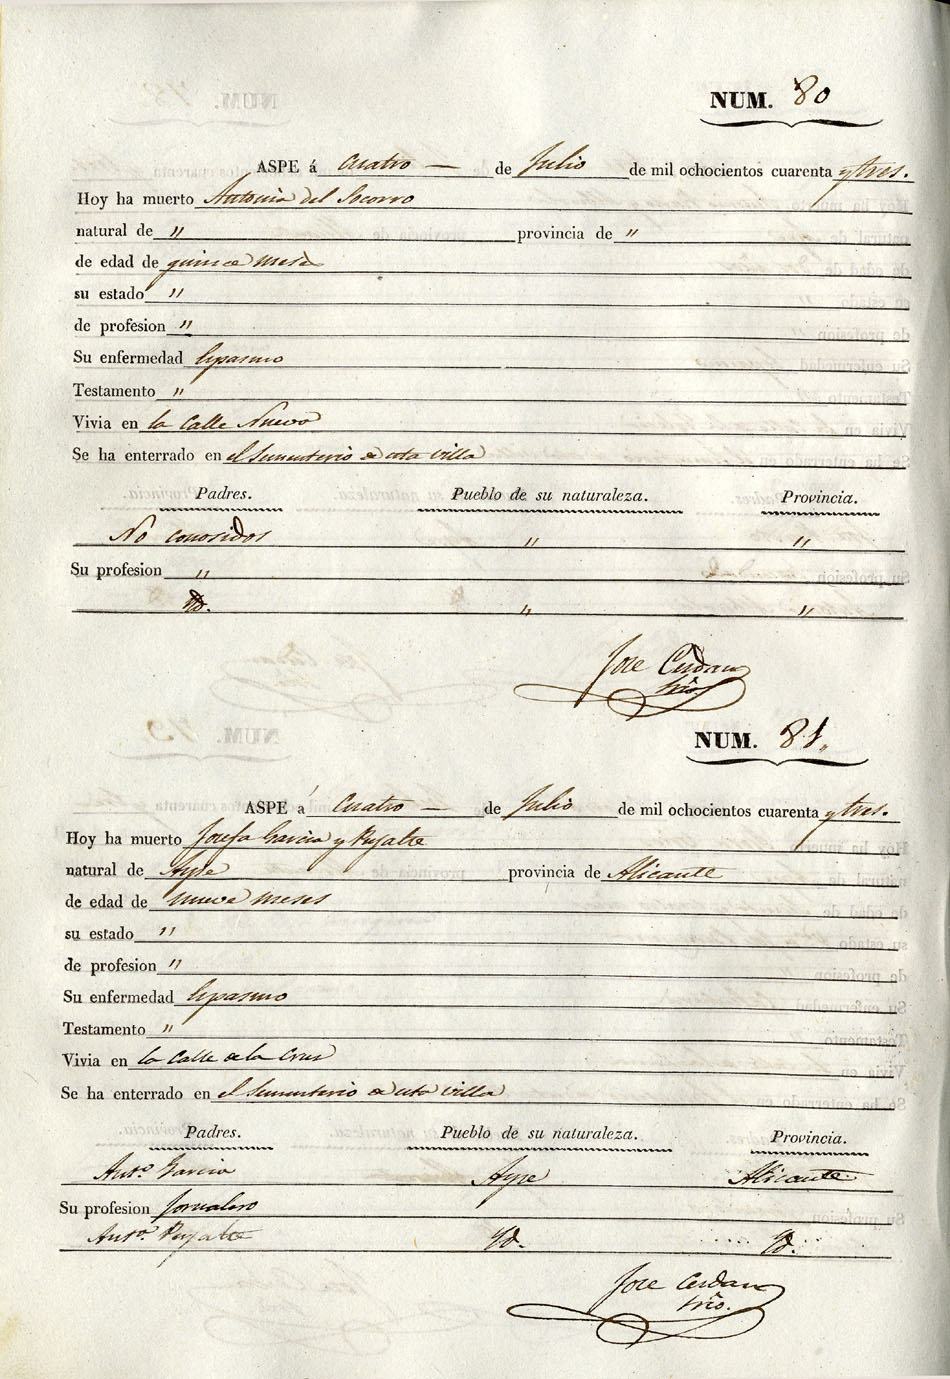 NUM. 80
ASPE á cuatro — de Julio de mil ochocientos cuarenta y tres.
Hoy ha muerto Antonia del Socorro
natural de " provincia de "
de edad de quince meses
su estado "
de profesion "
Su enfermedad Espasmo
Testamento "
Vivia en la Calle Nueva
Se ha enterrado en el Sementerio de esta villa
Padres. Pueblo de su naturaleza. Provincia.
No conosidos " "
Su profesion "
Yd. " "
Jose Cerdan
Srio.
NUM. 81.
ASPE á Cuatro — de Julio de mil ochocientos cuarenta y tres.
Hoy ha muerto Josefa Garcia y Pujalte
natural de Aspe provincia de Alicante
de edad de nueve meses
su estado "
de profesion "
Su enfermedad Espasmo
Testamento "
Vivia en la Calle de la Crus
Se ha enterrado en el Sementerio de esta villa
Padres. Pueblo de su naturaleza. Provincia.
Anto. Garcia Aspe Alicante
Su profesion Jornalero
Anta. Pujalte Yd. Yd.
Jose Cerdan
Srio.